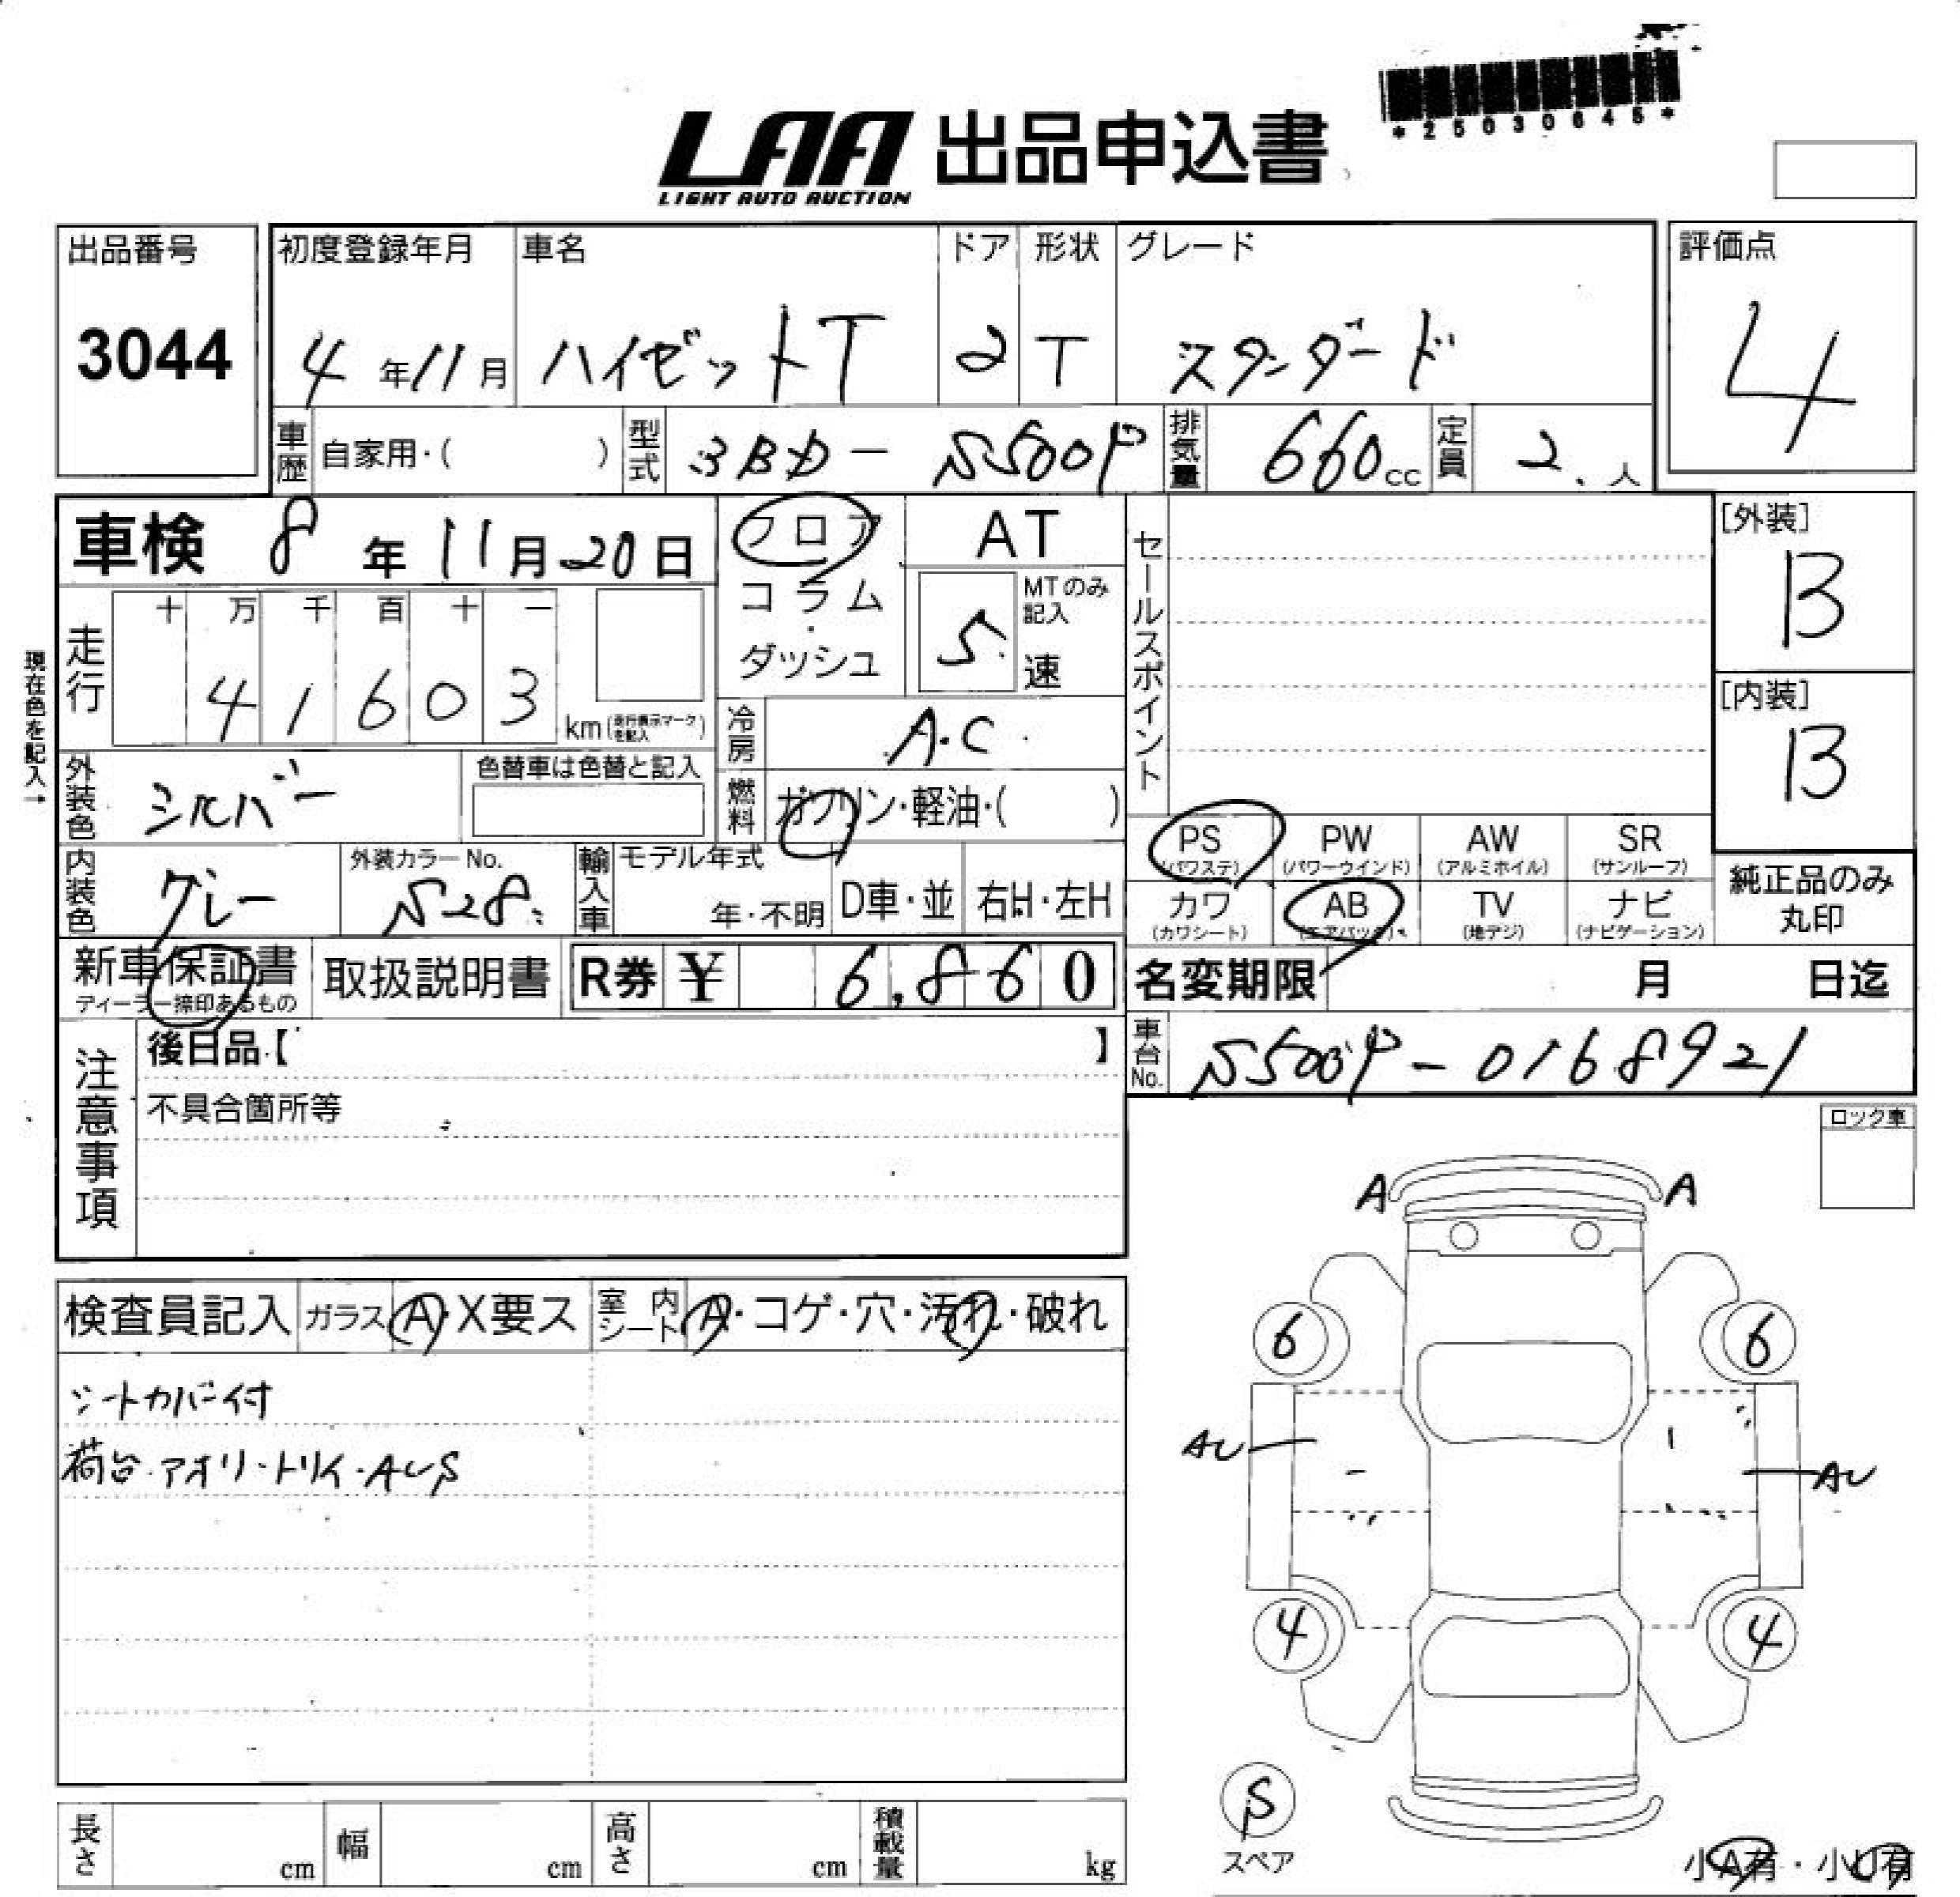 *25030645*
LAA 出品申込書
LIGHT AUTO AUCTION
出品番号 3044
初度登録年月 4年11月
車名 ハイゼットT
ドア 2
形状 T
グレード スタンダード
評価点 4
車歴 自家用・( )
型式 3BD-S500P
排気量 660cc
定員 2人
車検 8年11月20日
フロア
コラム
・
ダッシュ
AT
MTのみ記入
5速
セールスポイント
[外装]
B
[内装]
B
現在色を記入→
走行
十 万 千 百 十 一
4 1 6 0 3 km(走行表示マークを記入)
冷房 A.C
外装色 シルバー
色替車は色替と記入
燃料 ガソリン・軽油・( )
内装色 グレー
外装カラーNo. S28
輸入車
モデル年式
年・不明
D車・並
右H・左H
PS (パワステ)
PW (パワーウインド)
AW (アルミホイル)
SR (サンルーフ)
カワ (カワシート)
AB (エアバック)
TV (地デジ)
ナビ (ナビゲーション)
純正品のみ
丸印
新車保証書
ディーラー捺印あるもの
取扱説明書
R券 ¥ 6,860
名変期限 月 日迄
車台No. S500P-0168921
注意事項
後日品【 】
不具合箇所等
ロック車
A A
6 6
AU AU
4 4
S
スペア
小A有・小U有
検査員記入
ガラス A・X要ス
室内シート A・コゲ・穴・汚れ・破れ
シートカバー付
荷台・アオリ・トリイ・AUS
長さ cm
幅 cm
高さ cm
積載量 kg